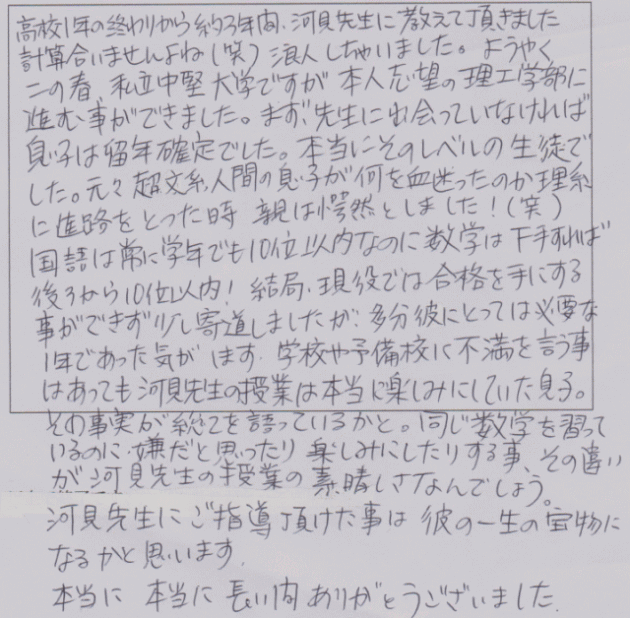 高校1年の終わりから約3年間、河見先生に教えて頂きました
計算合いませんよね(笑)浪人しちゃいました。ようやく
この春、私立中堅大学ですが本人志望の理工学部に
進む事ができました。まず、先生に出会っていなければ
息子は留年確定でした。本当にそのレベルの生徒で
した。元々超文系人間の息子が何を血迷ったのか理系
に進路をとった時 親は愕然としました!(笑)
国語は常に学年でも10位以内なのに数学は下手すれば
後ろから10位以内! 結局、現役では合格を手にする
事ができず少し寄道しましたが、多分彼にとっては必要な
1年であった気がします。学校や予備校に不満を言う事
はあっても河見先生の授業は本当に楽しみにしていた息子。
その事実が総てを語っているかと。同じ数学を習って
いるのに、嫌だと思ったり楽しみにしたりする事、その違い
が河見先生の授業の素晴しさなんでしょう。
河見先生にご指導頂けた事は彼の一生の宝物に
なるかと思います。
本当に 本当に 長い間ありがとうございました。